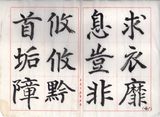 求衣靡
息豈非
攸攸黔
首垢障